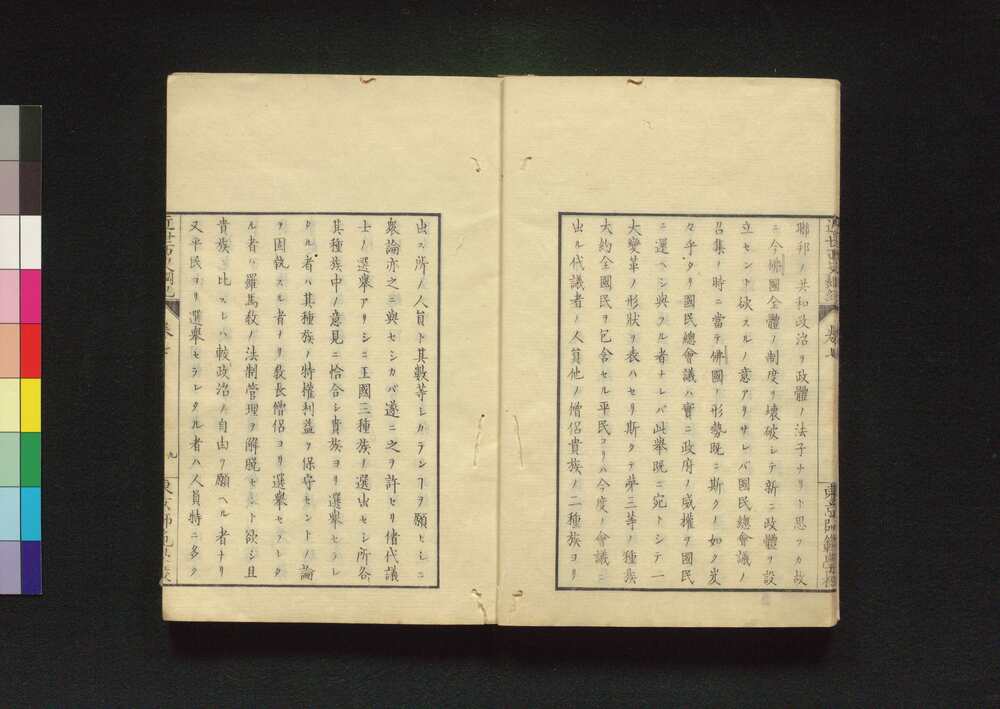 聯邦ノ共和政治ヲ政體ノ法子ナリト思フカ故
ニ今佛國全體ノ制度ヲ壊破シテ新ニ政體ヲ設
立セント欲スルノ意アリサレバ國民總會議ノ
召集ノ時ニ當テ佛國ノ形勢既ニ斯クノ如ク岌
々乎タリ國民總會議ハ實ニ政府ノ威權ヲ國民
ニ還ヘシ與フル者ナレバ此擧既ニ宛トシテ一
大變革ノ形狀ヲ表ハセリ斯クテ第三等ノ種族
大約全國民ヲ包含セル平民ヨリハ今度ノ會議ニ
出ル代議者ノ人員他ノ僧侶貴族ノ二種族ヨリ
出ス所ノ人員ト其數等シカランヿヲ願ヒシニ
衆論亦之ニ與セシカバ遂ニ之ヲ許セリ偖代議
士ノ選擧アリシニ王國三種族ノ選出セシ所各
其種族中ノ意見ニ恰合シ貴族ヨリ選擧セラレ
タル者ハ其種族ノ特權利益ヲ保守セントノ論
ヲ固執スル者ナリ敎長僧侶ヨリ選擧セラレタ
ル者ハ羅馬敎ノ法制管理ヲ解脫セント欲シ且
貴族ニ比スレバ較政治ノ自由ヲ願ヘル者ナリ
又平民ヨリ選擧セラレタル者ハ人員特ニ多ク
近世西史綱紀
卷七
九